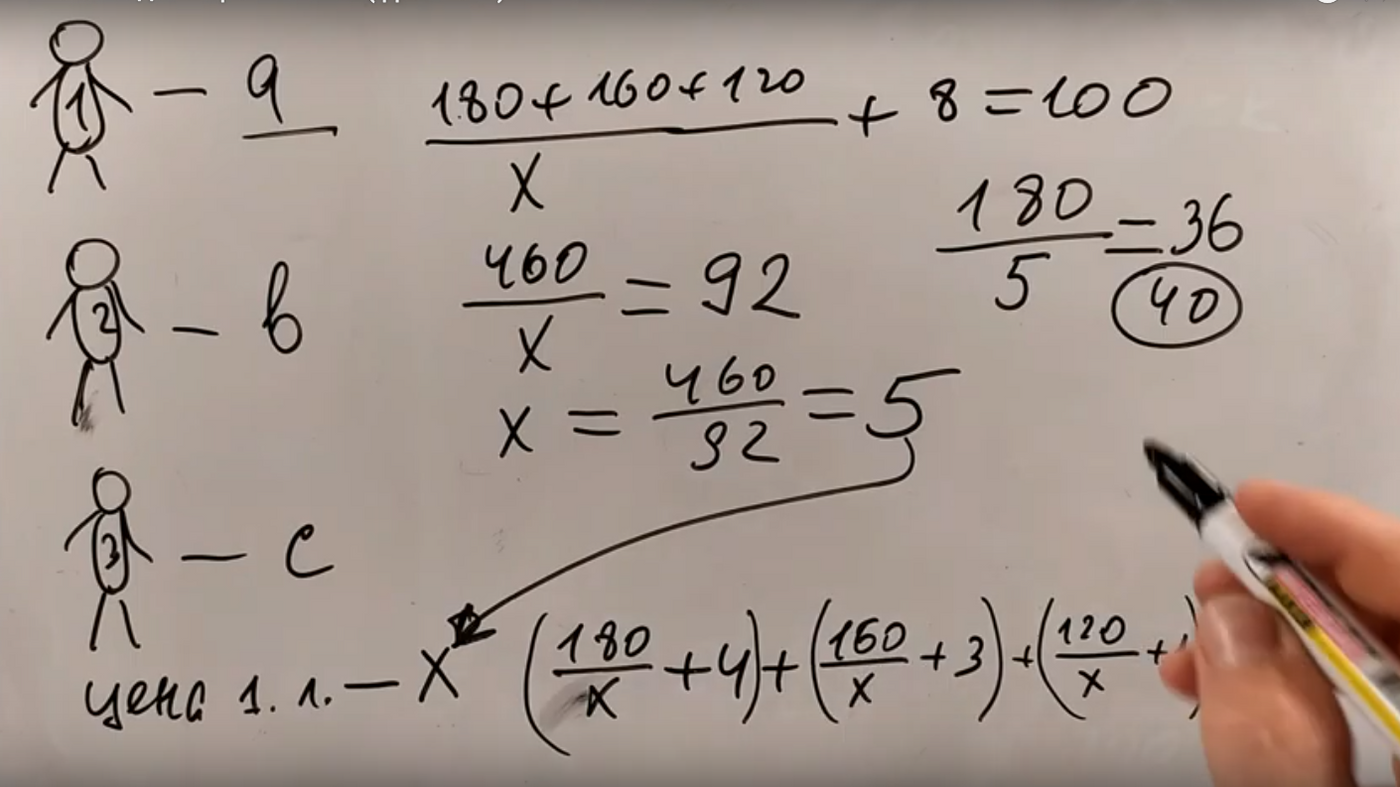 1 — a
180+160+120 / x + 8 = 100
180 / 5 = 36
40
2 — в
460 / x = 92
x = 460 / 92 = 5
3 — c
цена 1. л. — x
(180 / x + 4) + (160 / x + 3) + (120 / x +